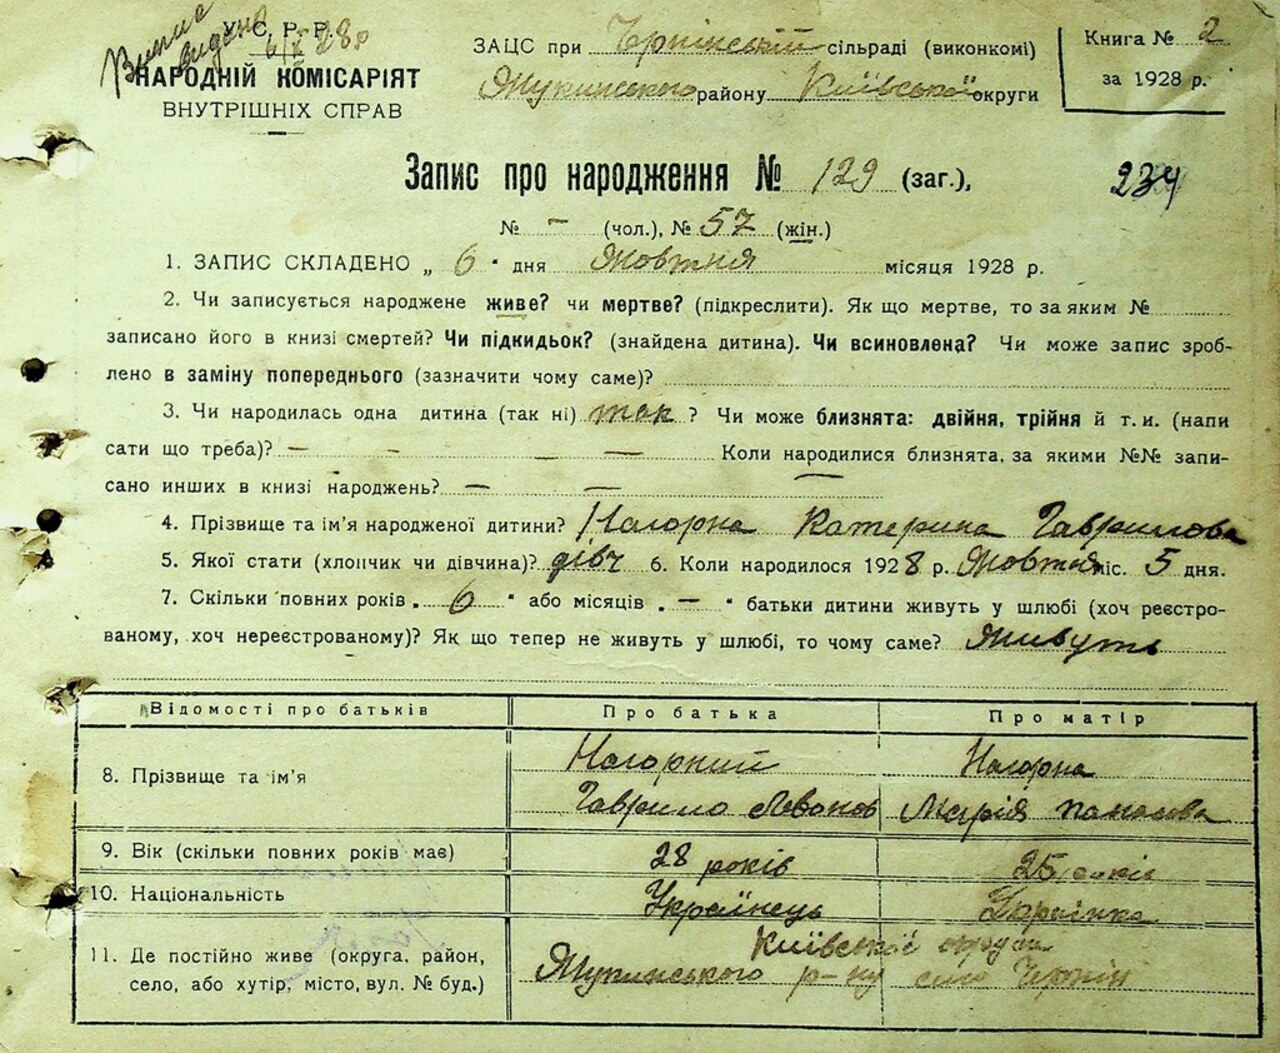 Випис
видано
6/X 28р
У. С. Р. Р.
НАРОДНІЙ КОМІСАРІЯТ
ВНУТРІШНІХ СПРАВ
ЗАЦС при Чернінській сільраді (виконкомі)
Жукинського району Київської округи
Книга № 2
за 1928 р.
Запис про народження № 129 (заг.),
234
№ – (чол.), № 57 (жін.)
1. ЗАПИС СКЛАДЕНО „ 6 " дня Жовтня місяця 1928 р.
2. Чи записується народжене живе? чи мертве? (підкреслити). Як що мертве, то за яким №
записано його в книзі смертей? Чи підкидьок? (знайдена дитина). Чи всиновлена? Чи може запис зроб-
лено в заміну попереднього (зазначити чому саме)?
3. Чи народилась одна дитина (так ні) так ? Чи може близнята: двійня, трійня й т. и. (напи
сати що треба)? – – – – Коли народилися близнята, за якими №№ запи-
сано инших в книзі народжень? – – –
4. Прізвище та ім'я народженої дитини? Нагорна Катерина Гаврилова
5. Якої стати (хлопчик чи дівчина)? дівч 6. Коли народилося 1928 р. Жовтня міс. 5 дня.
7. Скільки повних років „ 6 " або місяців „ – " батьки дитини живуть у шлюбі (хоч реєстро-
ваному, хоч нереєстрованому)? Як що тепер не живуть у шлюбі, то чому саме? Живуть
Відомості про батьків Про батька Про матір
8. Прізвище та ім'я Нагорний Нагорна
Гаврило Левонов Марія Панасова
9. Вік (скільки повних років має) 28 років 25 років
10. Національність Українець Українка
11. Де постійно живе (округа, район, Київської округи
село, або хутір, місто, вул. № буд.) Жукинського р-ну село Чернін